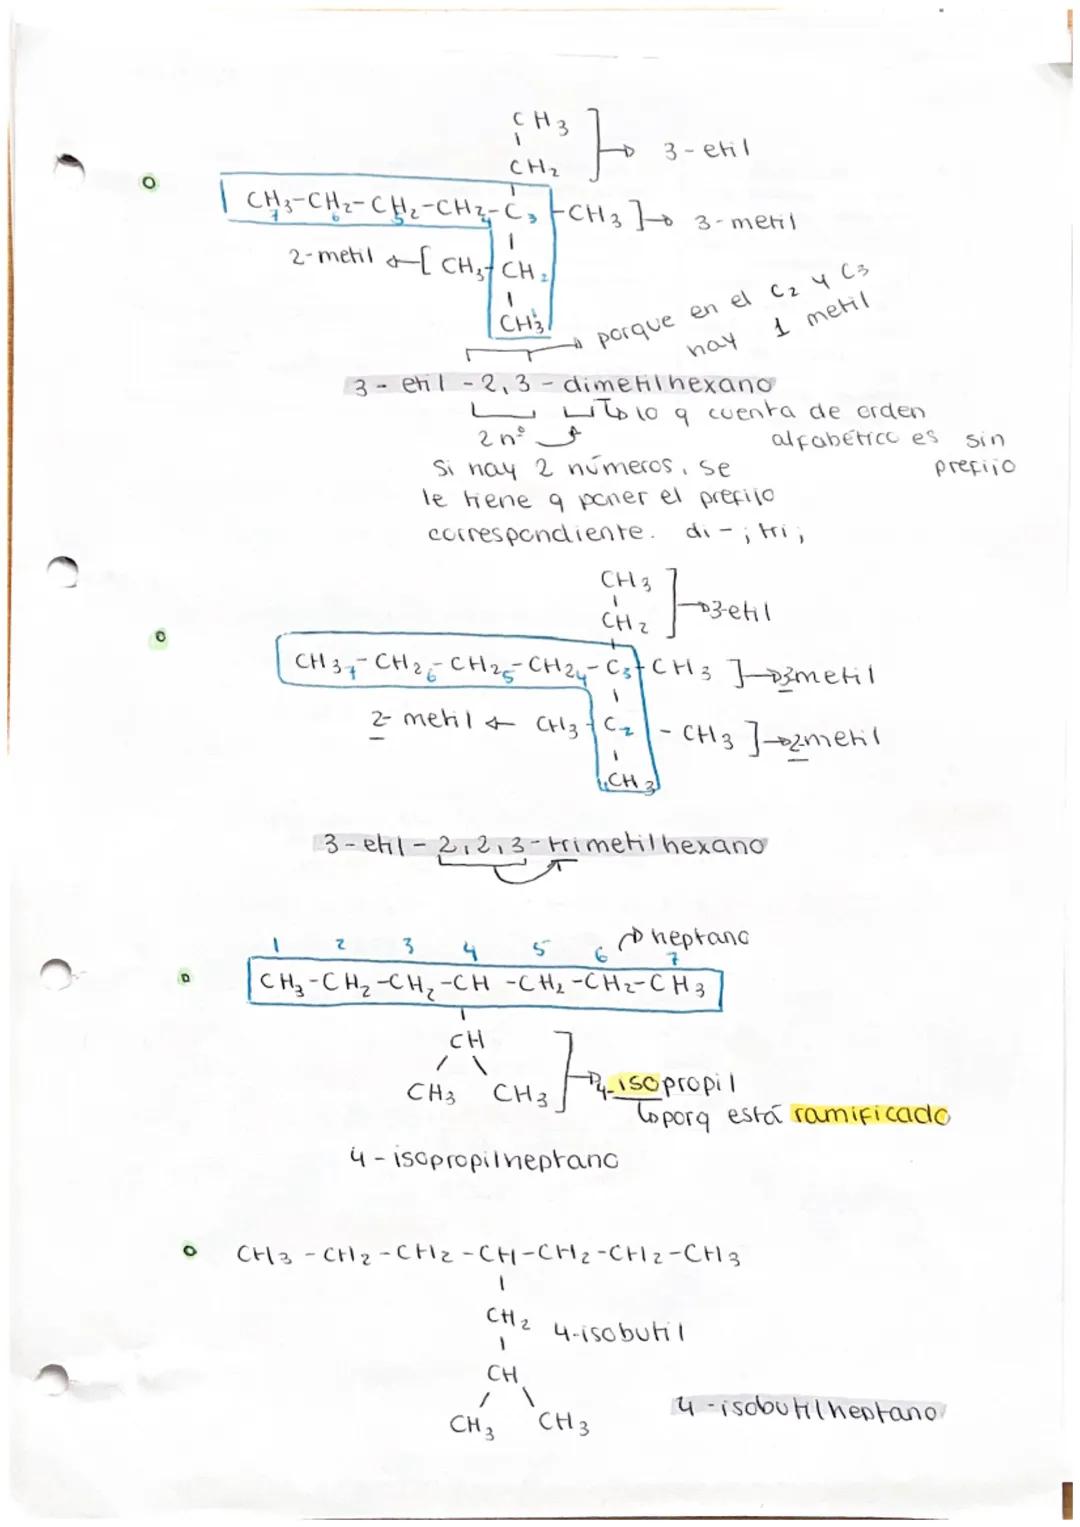 CH3
CH2
] → 3-etil
CH3-CH2-CH2-CH2-C3-CH3 ] → 3-metil
7 6 5 4
2-metil ← [ CH3-CH2
CH3 1
porque en el C2 y C3
hay 1 metil
3-etil-2,3-dimetilhexano
2 nº
lo q cuenta de orden
alfabético es sin
prefijo
Si hay 2 números, se
le tiene q poner el prefijo
correspondiente. di-; tri;
CH3
CH2
] → 3-etil
CH37-CH26-CH25-CH24-C3-CH3 ] → 3metil
2-metil ← CH3-C2-CH3 ] → 2metil
1CH3
3-etil-2,2,3-trimetilhexano
→ heptano
1 2 3 4 5 6 7
CH3-CH2-CH2-CH-CH2-CH2-CH3
CH
CH3 CH3
] → 4-isopropil
↳ porq está ramificado
4-isopropilheptano
CH3-CH2-CH2-CH-CH2-CH2-CH3
CH2
4-isobutil
CH
CH3 CH3
4-isobutilheptano